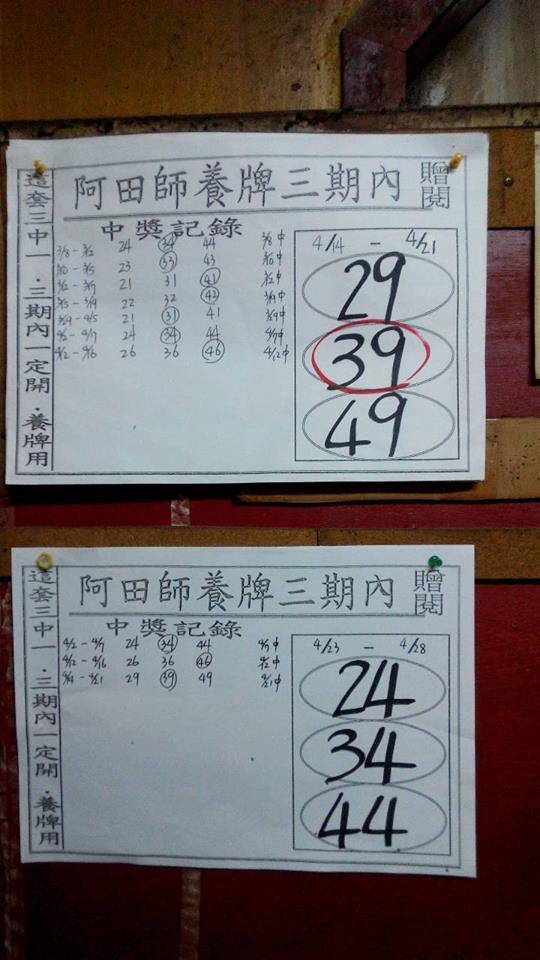 贈閱
阿田師養牌三期內
這套三中一．三期內一定開．養牌用
中獎記錄
3/8 - 3/12 24 34 44 3/8中
23 33 43 3/10中
3/12 - 3/17 21 31 41 3/12中
3/15 - 3/19 22 32 42 3/19中
21 31 41 中
4/2 - 4/7 24 34 44 4/7中
4/12 - 4/16 26 36 46 4/12中
4/14 - 4/21
29
39
49
贈閱
阿田師養牌三期內
這套三中一．三期內一定開．養牌用
中獎記錄
4/2 - 4/7 24 34 44 4/7中
4/12 - 4/16 26 36 46 4/12中
4/14 - 4/21 29 39 49 4/21中
4/23 - 4/28
24
34
44